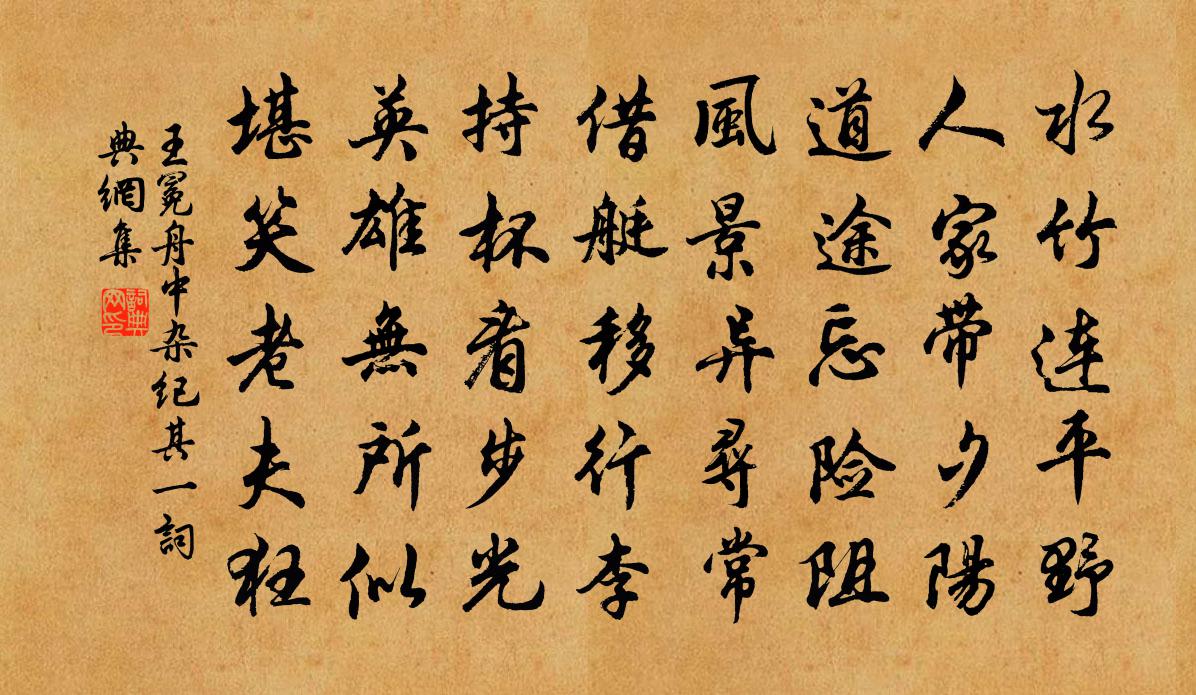 水竹連平野
人家带夕陽
道途忘险阻
風景异尋常
借艇移行李
持杯看步光
英雄無所似
堪笑老夫狂
王冕舟中杂纪其一詞
典網集
詞典網印